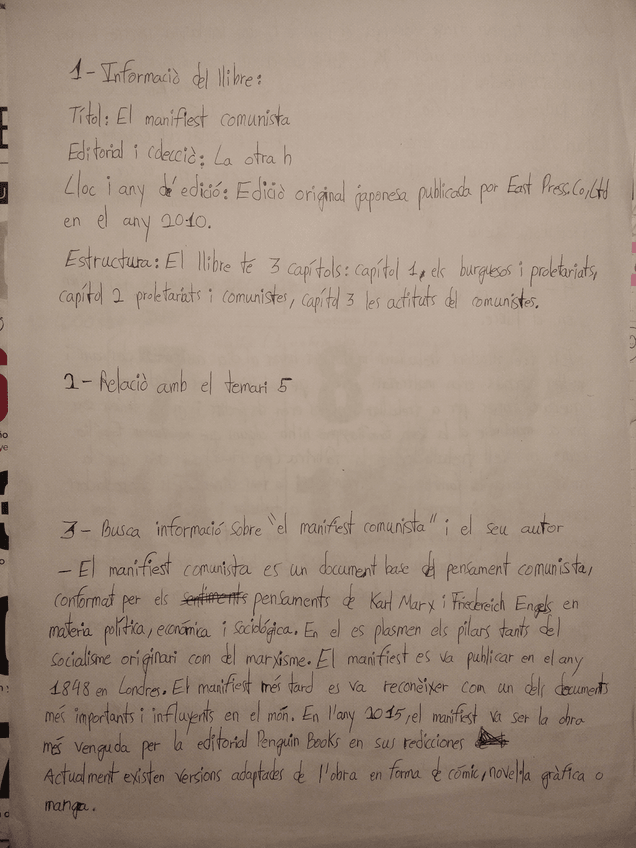 1- Informaciò del llibre:
Títol: El manifiest comunista
Editorial i colecció: La otra h
Lloc i any d'edició: Edició original japonesa publicada por East Press.Co,Ltd
en el any 2010.
Estructura: El llibre té 3 capítols: capítol 1, els burguesos i proletariats,
capítol 2 proletariats i comunistes, capítol 3 les actituts del comunistes.
2- Relaciò amb el temari 5
3- Busca informació sobre "el manifiest comunista" i el seu autor
- El manifiest comunista es un document base del pensament comunista,
conformat per els sentiments pensaments de Karl Marx i Friedereich Engels en
materia política, económica i sociológica. En el es plasmen els pilars tants del
socialisme originari com del marxisme. El manifiest es va publicar en el any
1848 en Londres. El manifiest més tard es va reconèixer com un dels documents
més importants i influyents en el món. En l'any 2015, el manifiest va ser la obra
més venguda per la editorial Penguin Books en sus redicciones
Actualment existen versions adaptades de l'obra en forma de cómic, novel·la gràfica o
manga.